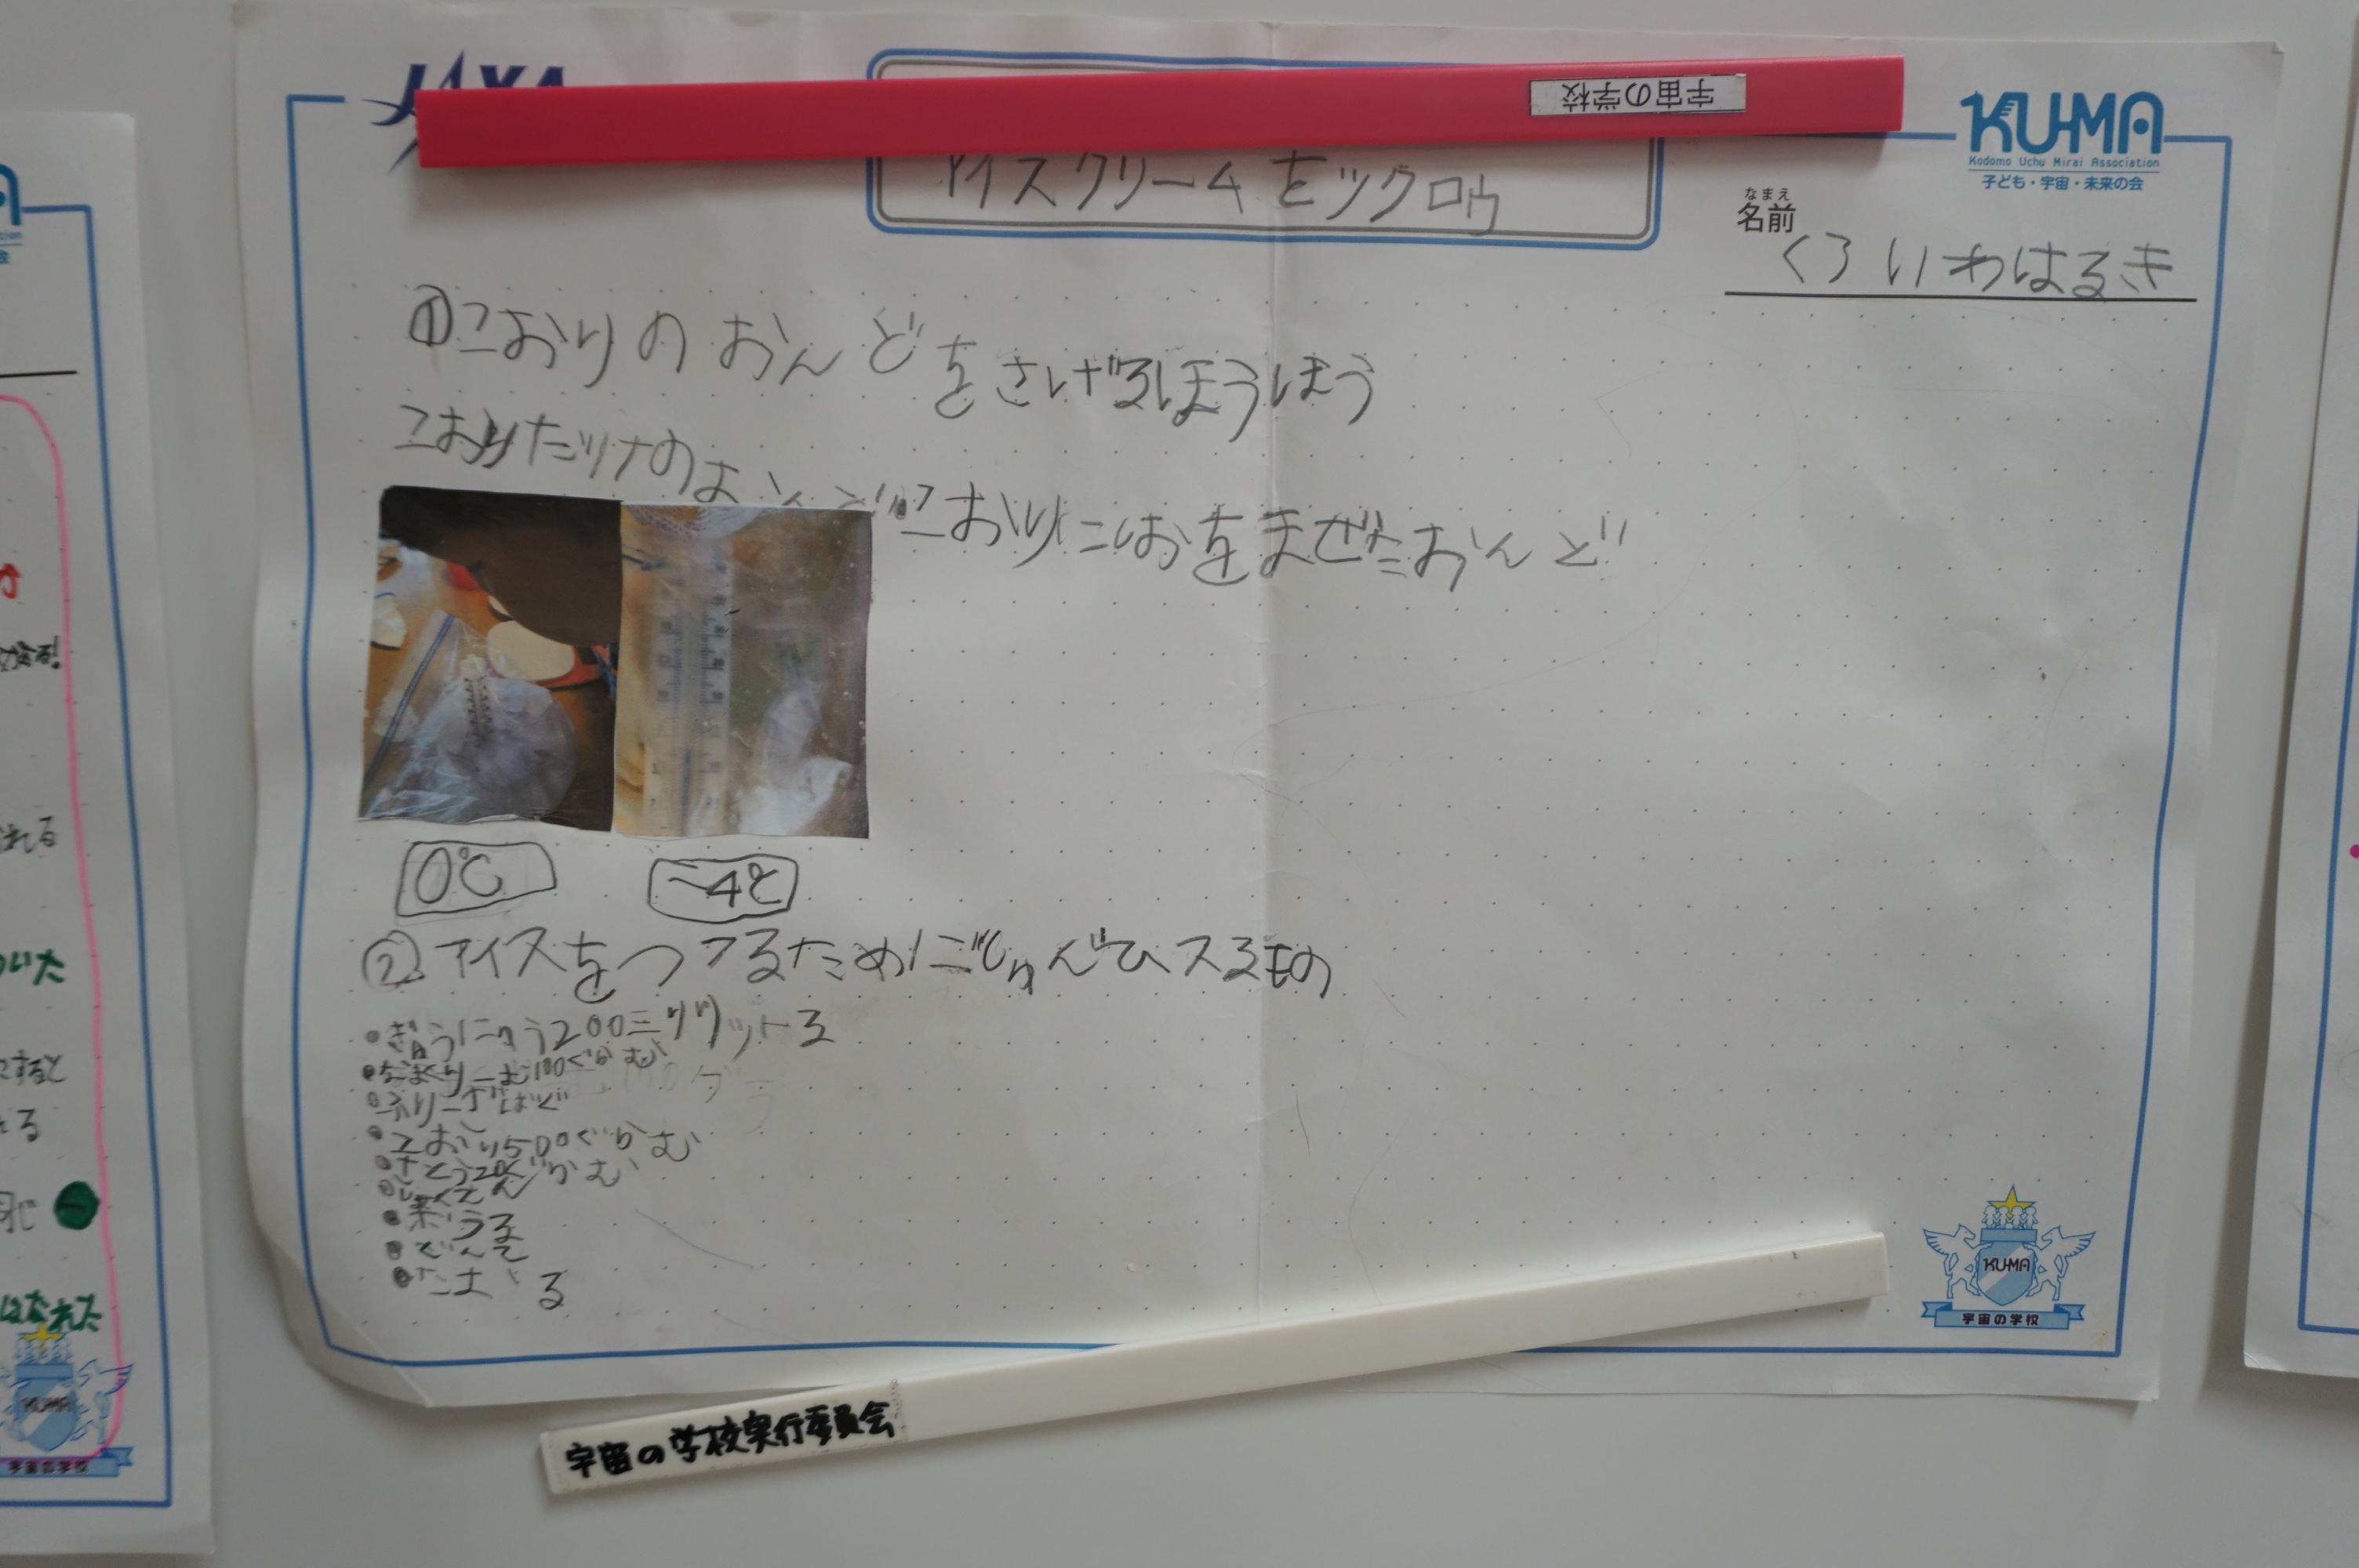 JAXA
宇宙の学校
KU-MA
Kodomo Uchu Mirai Association
子ども・宇宙・未来の会
アイスクリームをツクロウ
なまえ
名前
くろいわはるき
①こおりのおんどをさげるほうほう
こおりだけのおんど
こおりにしおをまぜたおんど
0℃
-4℃
②アイスをつくるためにじゅんびスるもの
・ぎゅうにゅう200ミリリットる
・なまくりーむ100ぐらむ
・ふりーざーばぐ
・こおり500ぐらむ
・さとう20ぐらむ
・しょくえん
・ぼうる
・ぐんて
・たおる
KU-MA
宇宙の学校
宇宙の学校実行委員会
れる
いた
すると
る
はなれた
KU-MA
宇宙の学校